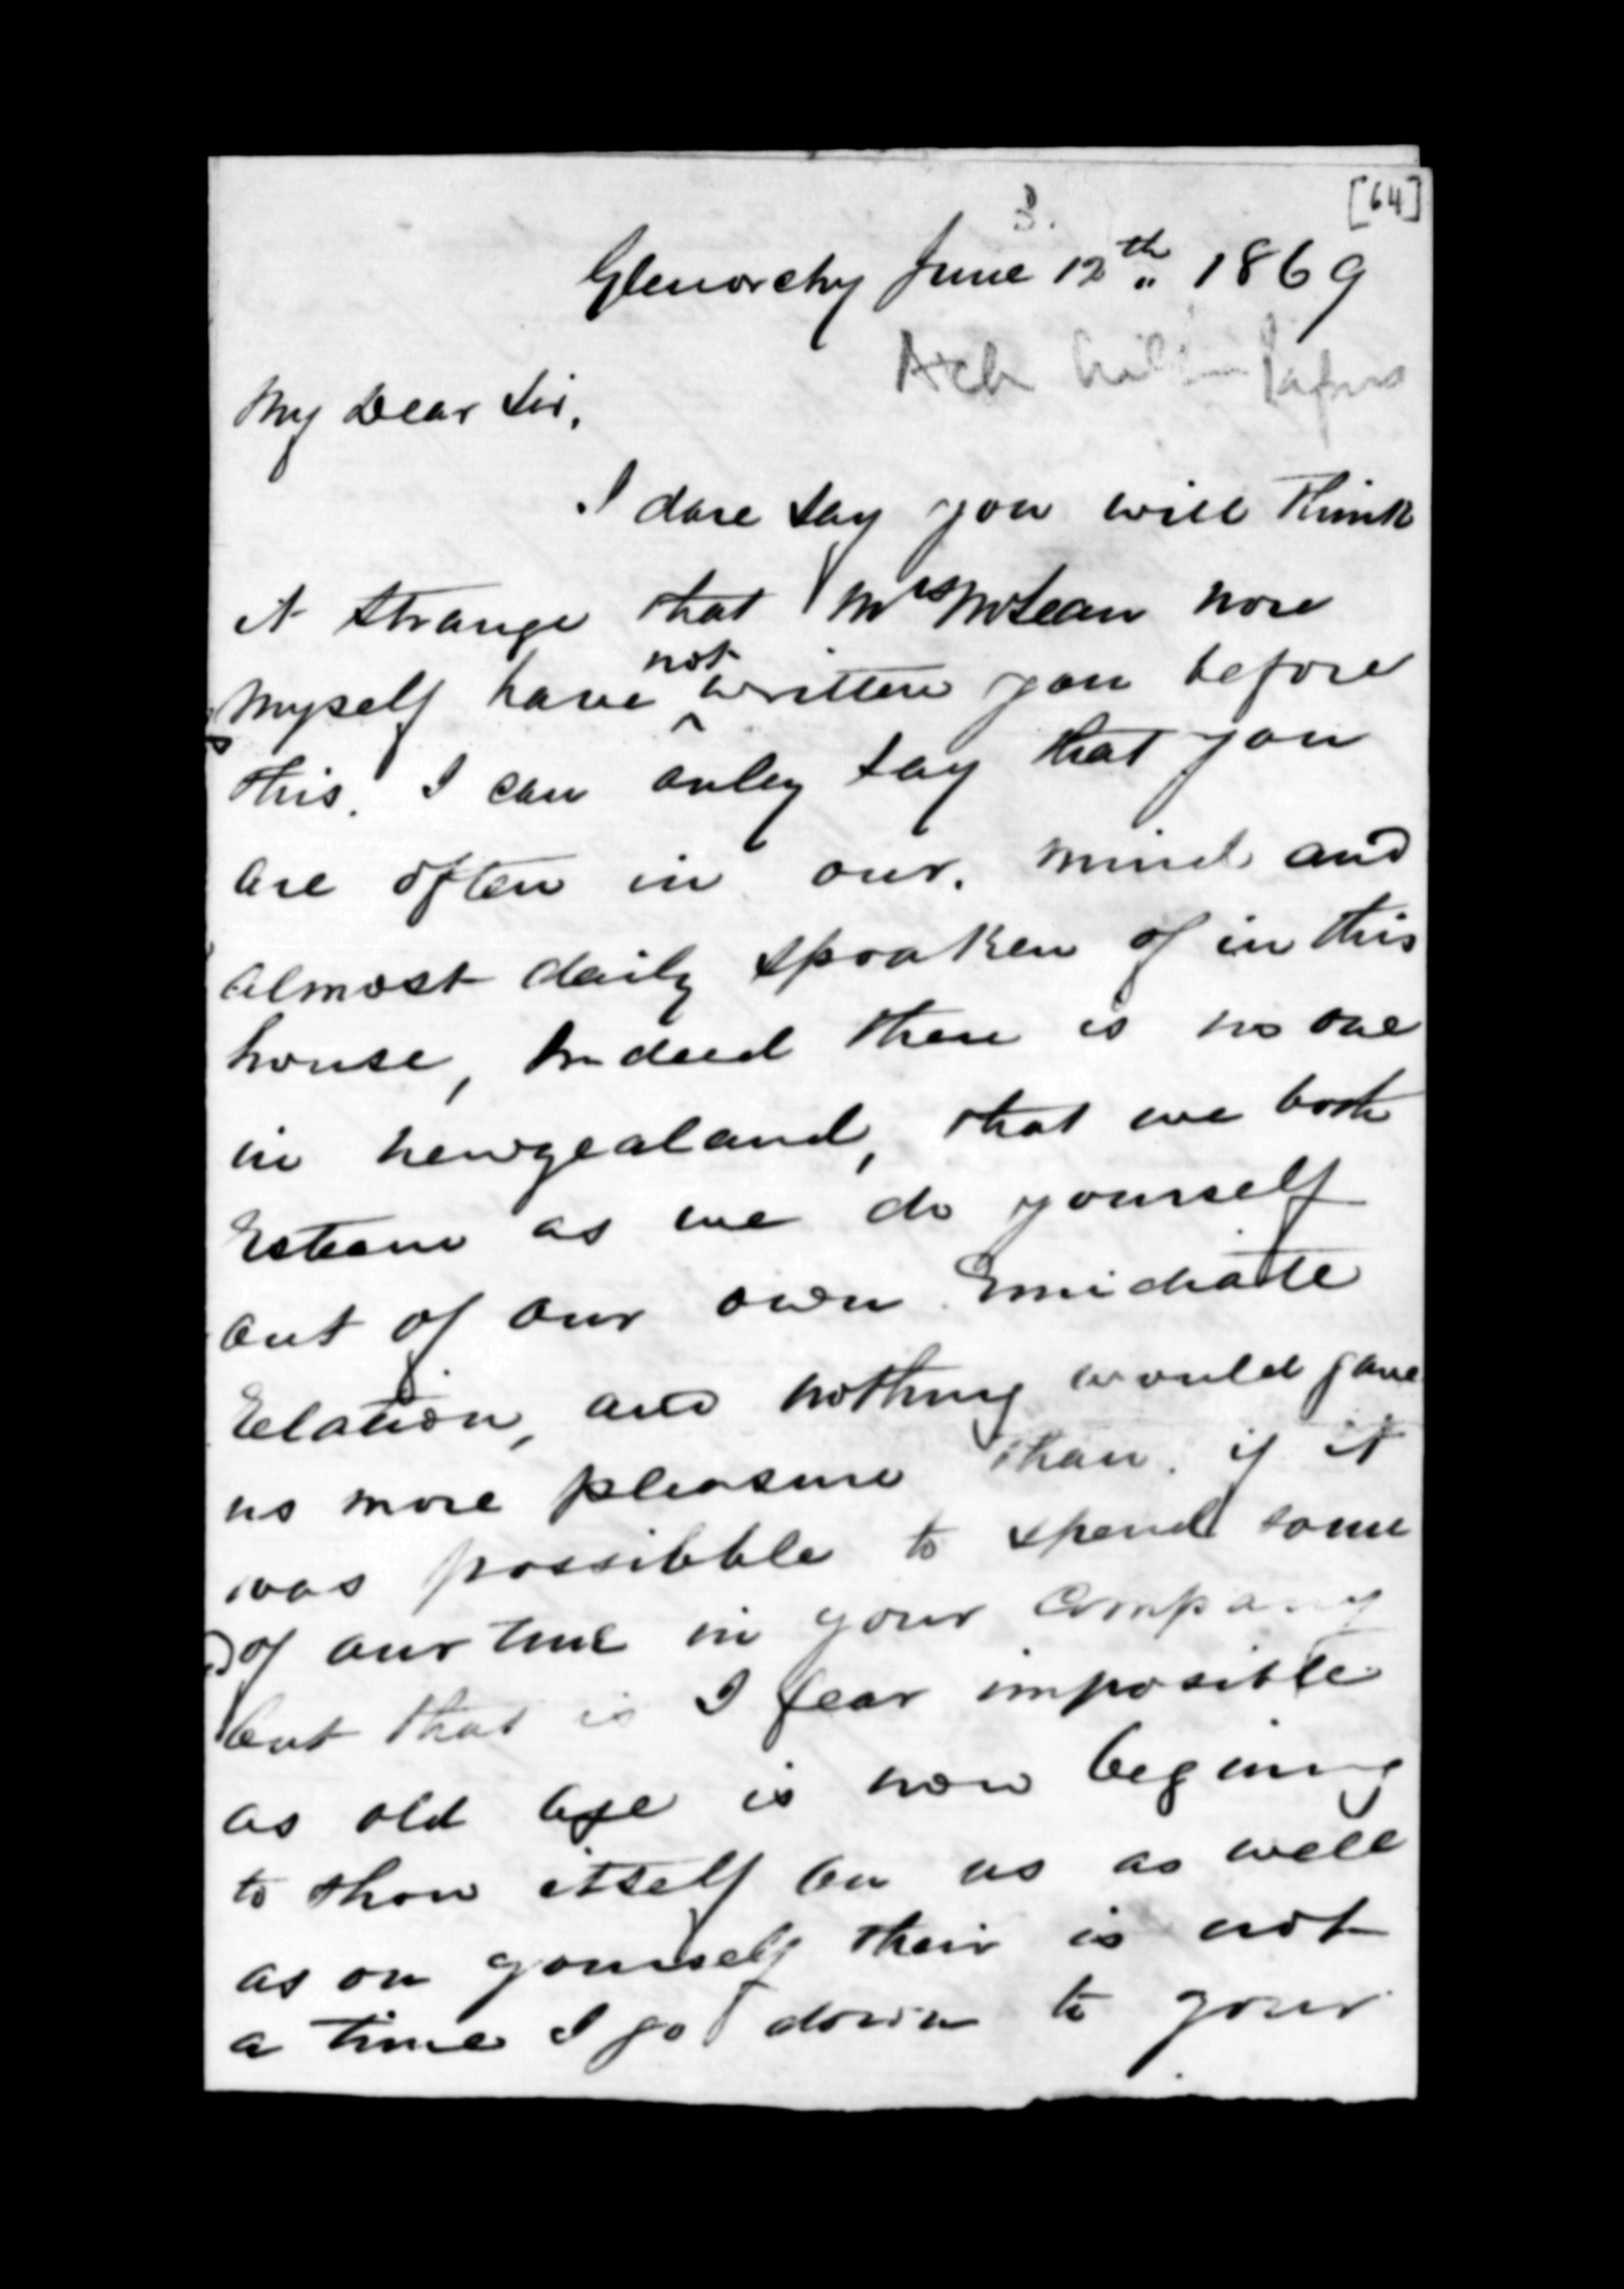 [64]
3.
Glenorchy June 12th 1869
My Dear Sir,
I dare say you will think
it strange that Mrs McLean nore
myself have not written you before
this. I can onley say that you
are often in our. mind and
almost daily spoaken of in this
house, Indeed there is no one
in newzealand, that we both
Esteem as we do yourself
out of our own Emidiate
Relation, and nothing would gave
us more pleasure than. if it
was possibble to spend some
of our time in your Company
but that is I fear imposible
as old age is now begining
to show itself on us as well
as on yourself their is not
a time I go down to your